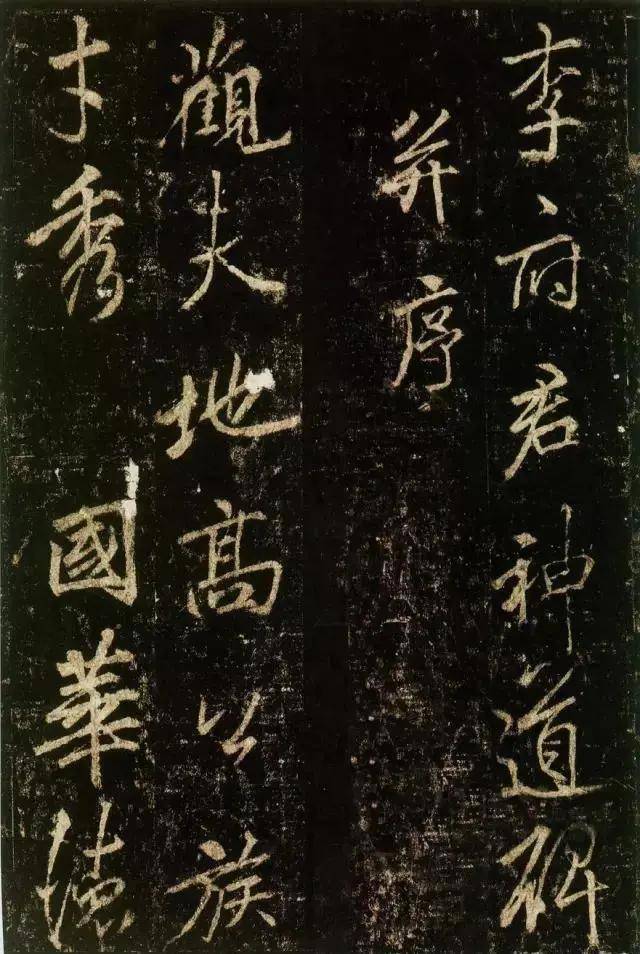 李府君神道碑
并序
觀夫地高公族
才秀國華德